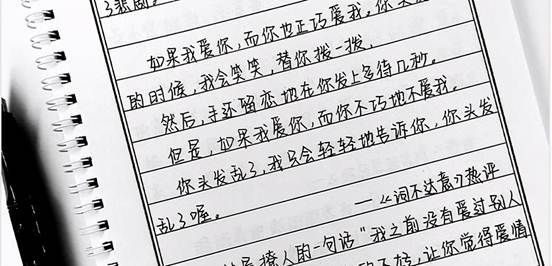 了悲剧。
如果我爱你，而你也正巧爱我。你头发
的时候，我会笑笑，替你拨一拨，
然后，手还留恋地在你发上多待几秒。
但是，如果我爱你，而你不巧地不爱我。
你头发乱了，我只会轻轻地告诉你，你头发
乱了喔。
——《词不达意》热评
最撩人的一句话“我之前没有爱过别人
不好，让你觉得爱情